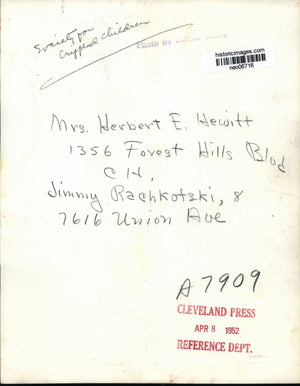 Society for
Crippled Children
Photo by
historicimages.com
neo06716
Mrs. Herbert E. Hewitt
1356 Forest Hills Blvd
C H.
Jimmy Rachkotski, 8
7616 Union Ave
A7909
CLEVELAND PRESS
APR 8 1952
REFERENCE DEPT.